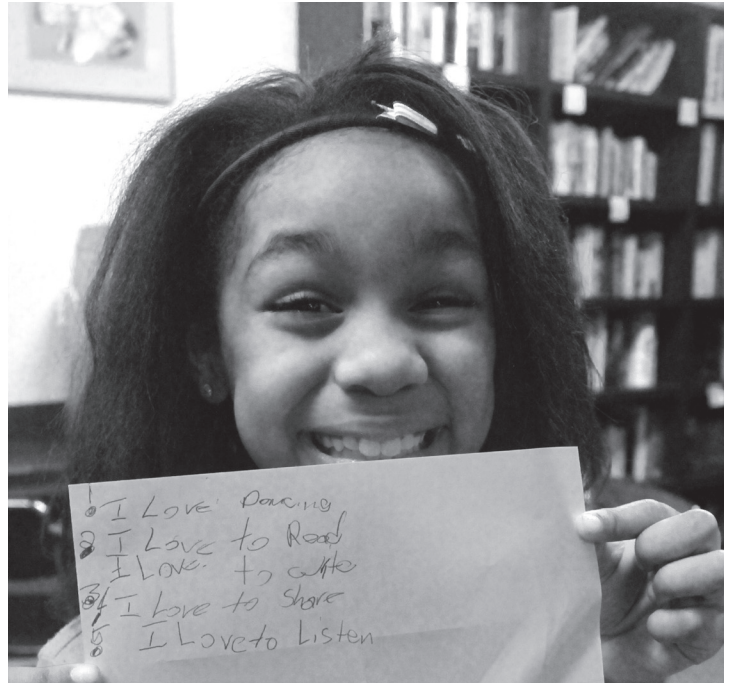 1. I Love Dancing
2. I Love to Read
I Love to write
3/4. I Love to Share
5. I Love to Listen